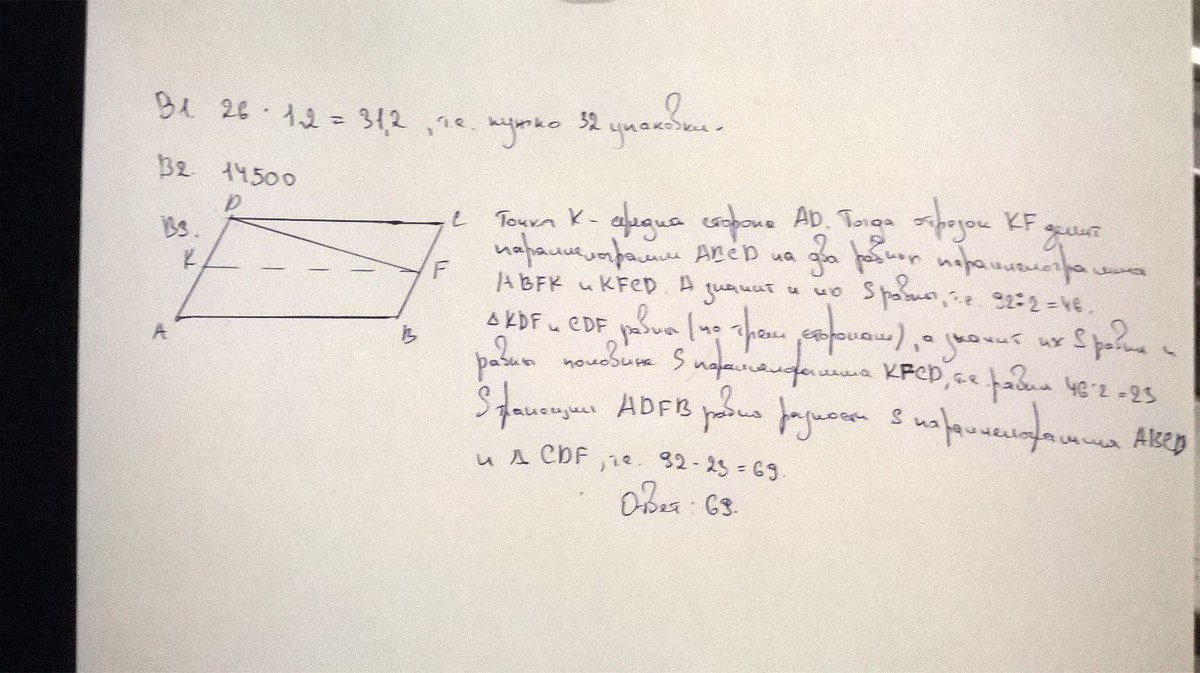 B1. 26 · 1,2 = 31,2 , т.е. нужно 32 упаковки.
B2. 14500
B3.
D C
K F
A B
Точка K - средина стороны AD. Тогда отрезок KF делит
параллелограмм ABCD на два равных параллелограмма
ABFK и KFCD. А значит и их S равны, т.е. 92:2=46.
Δ KDF и CDF равны (по трем сторонам), а значит их S равны и
равны половине S параллелограмма KFCD, т.е. равны 46:2=23
S трапеции ADFB равно разности S параллелограмма ABCD
и Δ CDF, т.е. 92-23=69.
Ответ: 69.